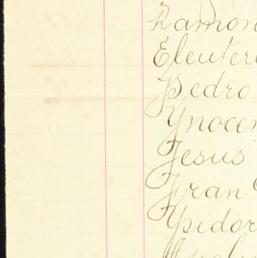 Ramon
Eleuter
Pedro
Ynocen
Jesus
Fran
Ysidor